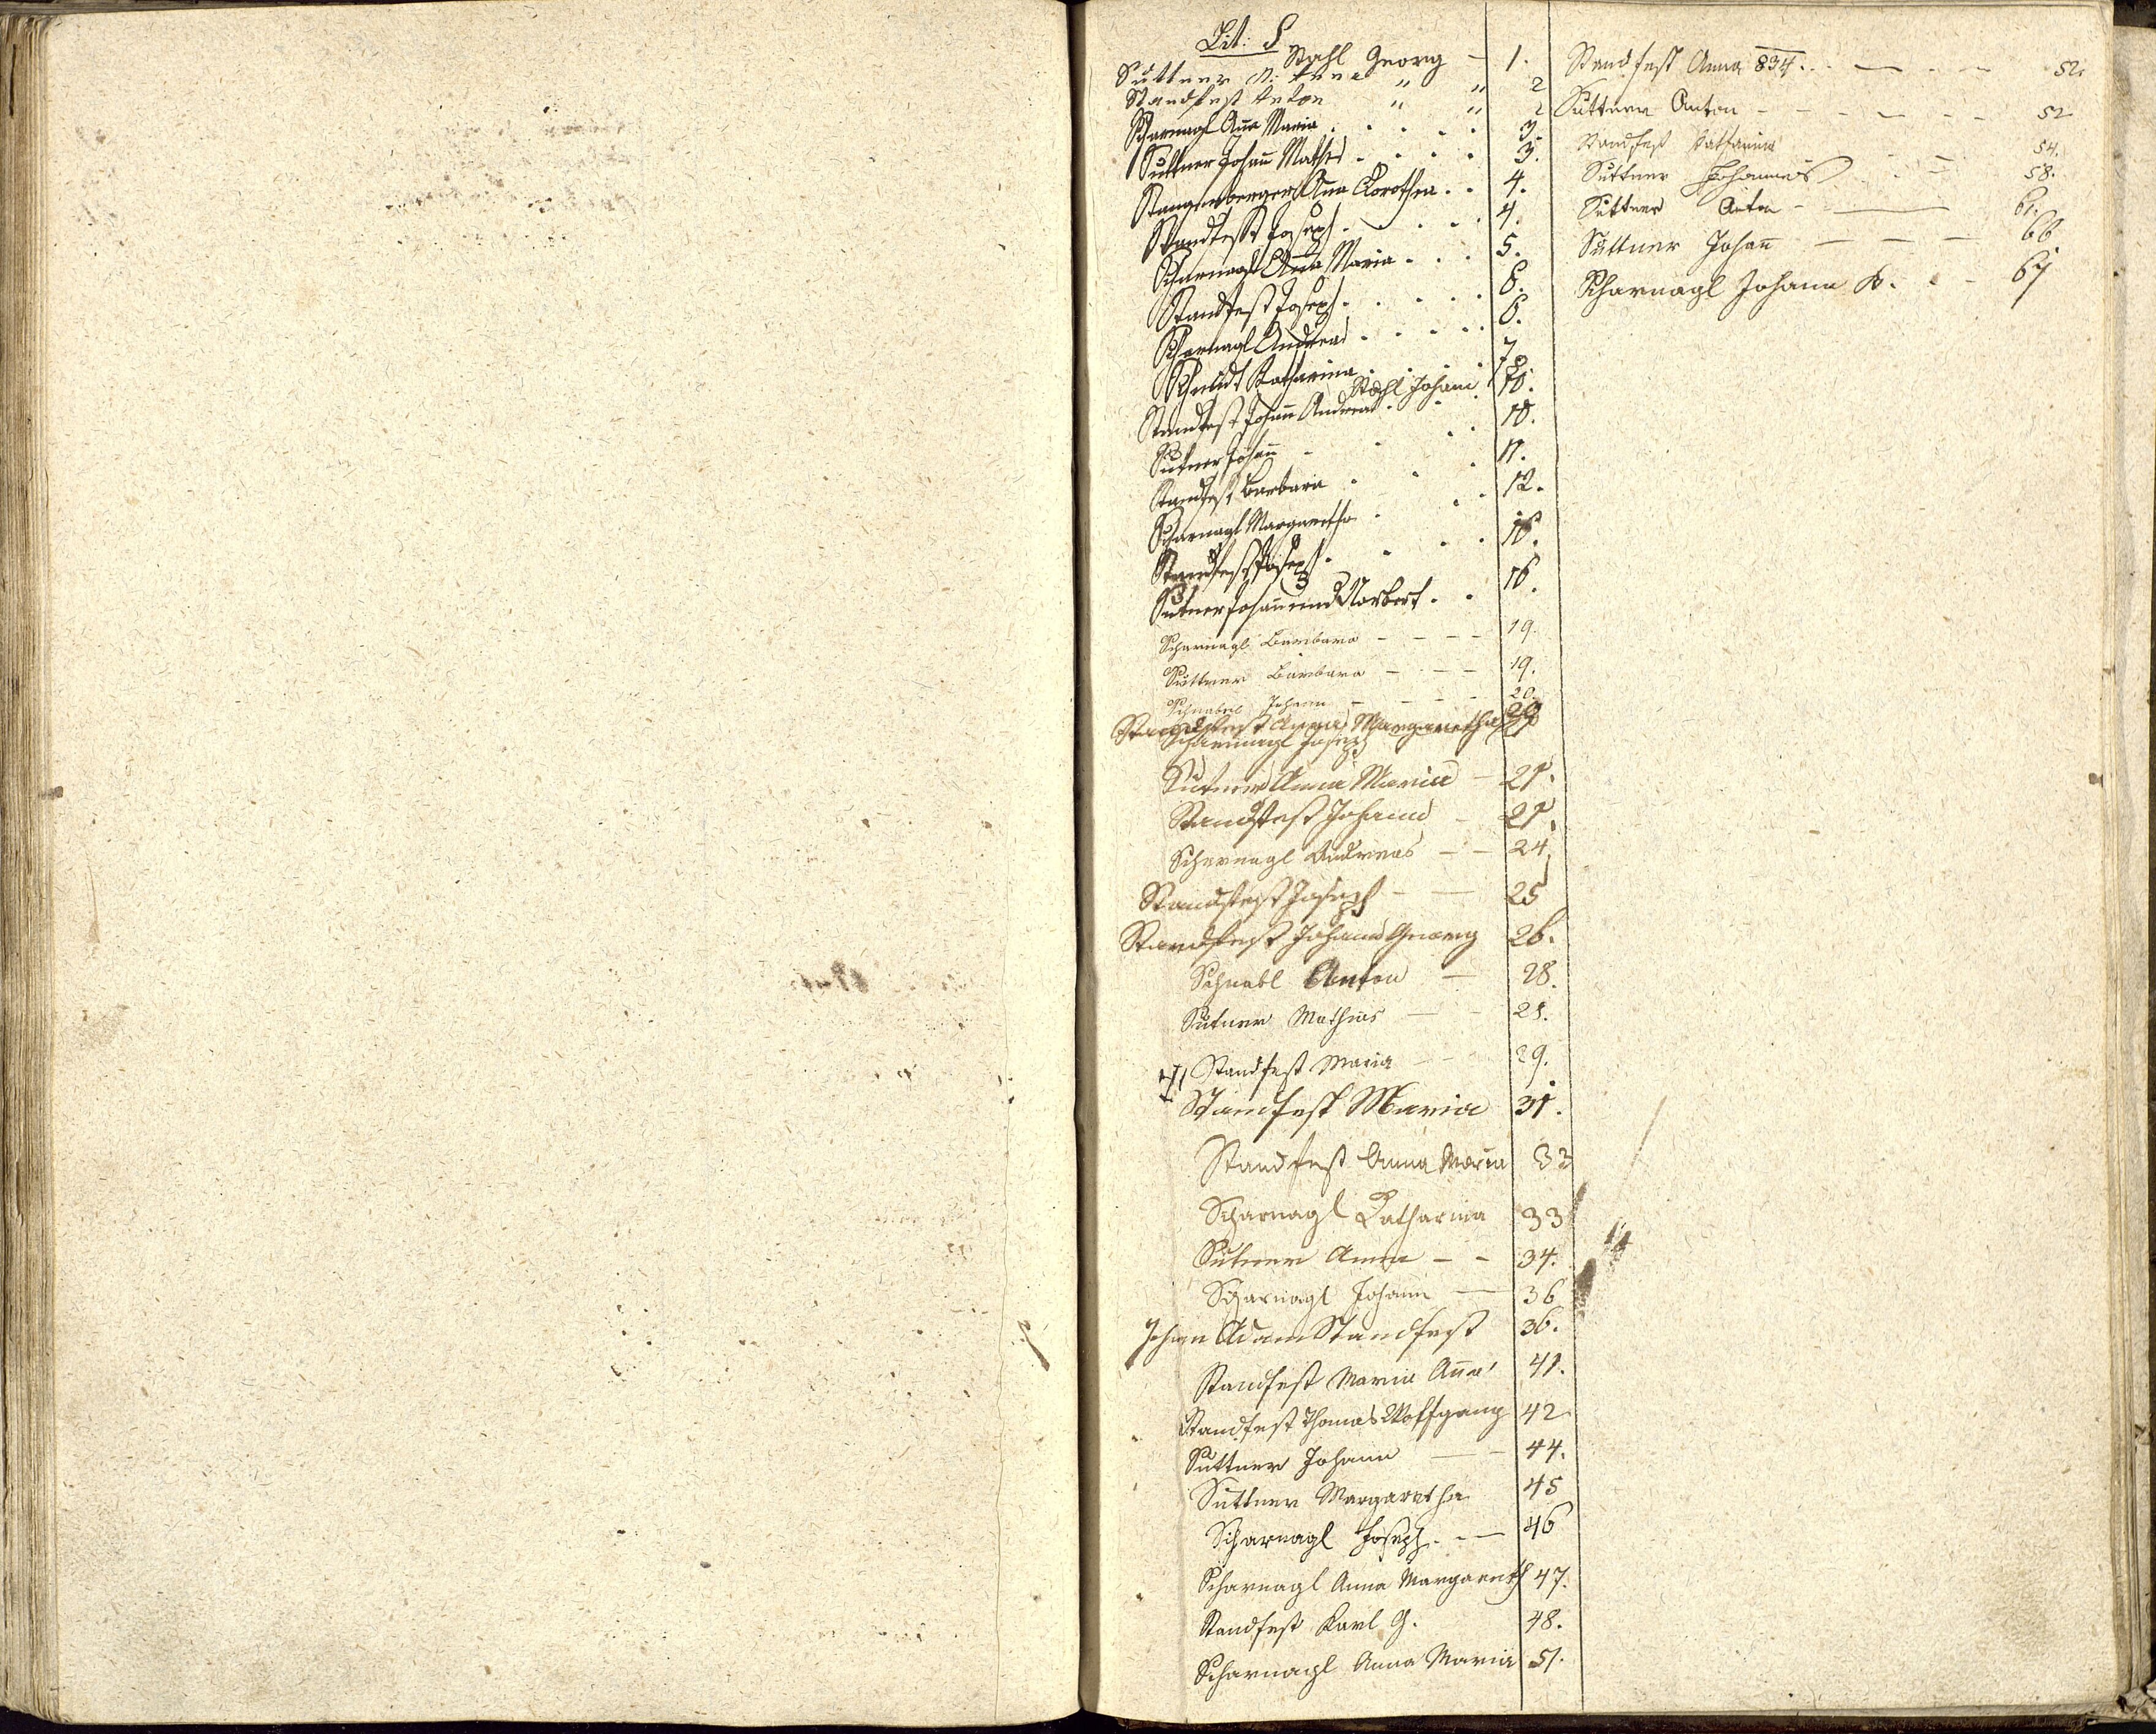 Lit: S
Stahl Georg - 1.
Suttner 2
Standfest Anton " " 2
Scharnagl Aña Maria . . . . . 3.
Suttner Johañ Mathes . . . . 3.
Stangenberger Aña Dorothea . . 4.
Standfest Joseph . . . . 4.
Scharnagl Aña Maria . . . 5.
Standfest Joseph . . . . . 6.
Scharnagl Andreas . . . . . 6.
Schmidt Katharina . . . . 7
Stahl Johann
Standfest Johañ Andreas . . 10.
Sutner Johañ . . . 10.
Standfest Barbara . . . 11.
Scharnagl Margaretha . . . 12.
Standfest Joseph . . . . 16.
Sutner Johañ und Norbert . . 16.
Scharnagl Barbara - - - - 19.
Suttner Barbara - - - 19.
Schnabel Johann - - - - 20.
Standfest Anna Margaretha
Scharnagl Joseph
Sutner Anna Maria - 21.
Standfest Johann - 21.
Scharnagl Andreas - - 24.
Standfest Joseph - - 25
Standfest Johann Georg 26.
Schnabl Anton - 28.
Sutner Mathias - - 28.
Standfest Maria - - 29.
Standfest Maria 31.
Standfest Anna Maria 33
Scharnagl Katharina 33
Sutner Anna - - 34.
Scharnagl Johann - 36
Johann Adam Standfest 36.
Standfest Maria Aña 41.
Standfest Thomas Wolfgang 42
Suttner Johann - - 44.
Suttner Margaretha 45
Scharnagl Joseph. - - 46
Scharnagl Anna Margareth 47.
Standfest Karl G. 48.
Scharnagl Anna Maria 51.
Standfest Anna 834. . - . - 52.
Suttner Anton - - - - - - 52
Standfest Katharina 54.
Suttner Johannes . - 58.
Suttner Anton - - 61.
Suttner Johañ - - - 66
Scharnagl Johann B. . - 67